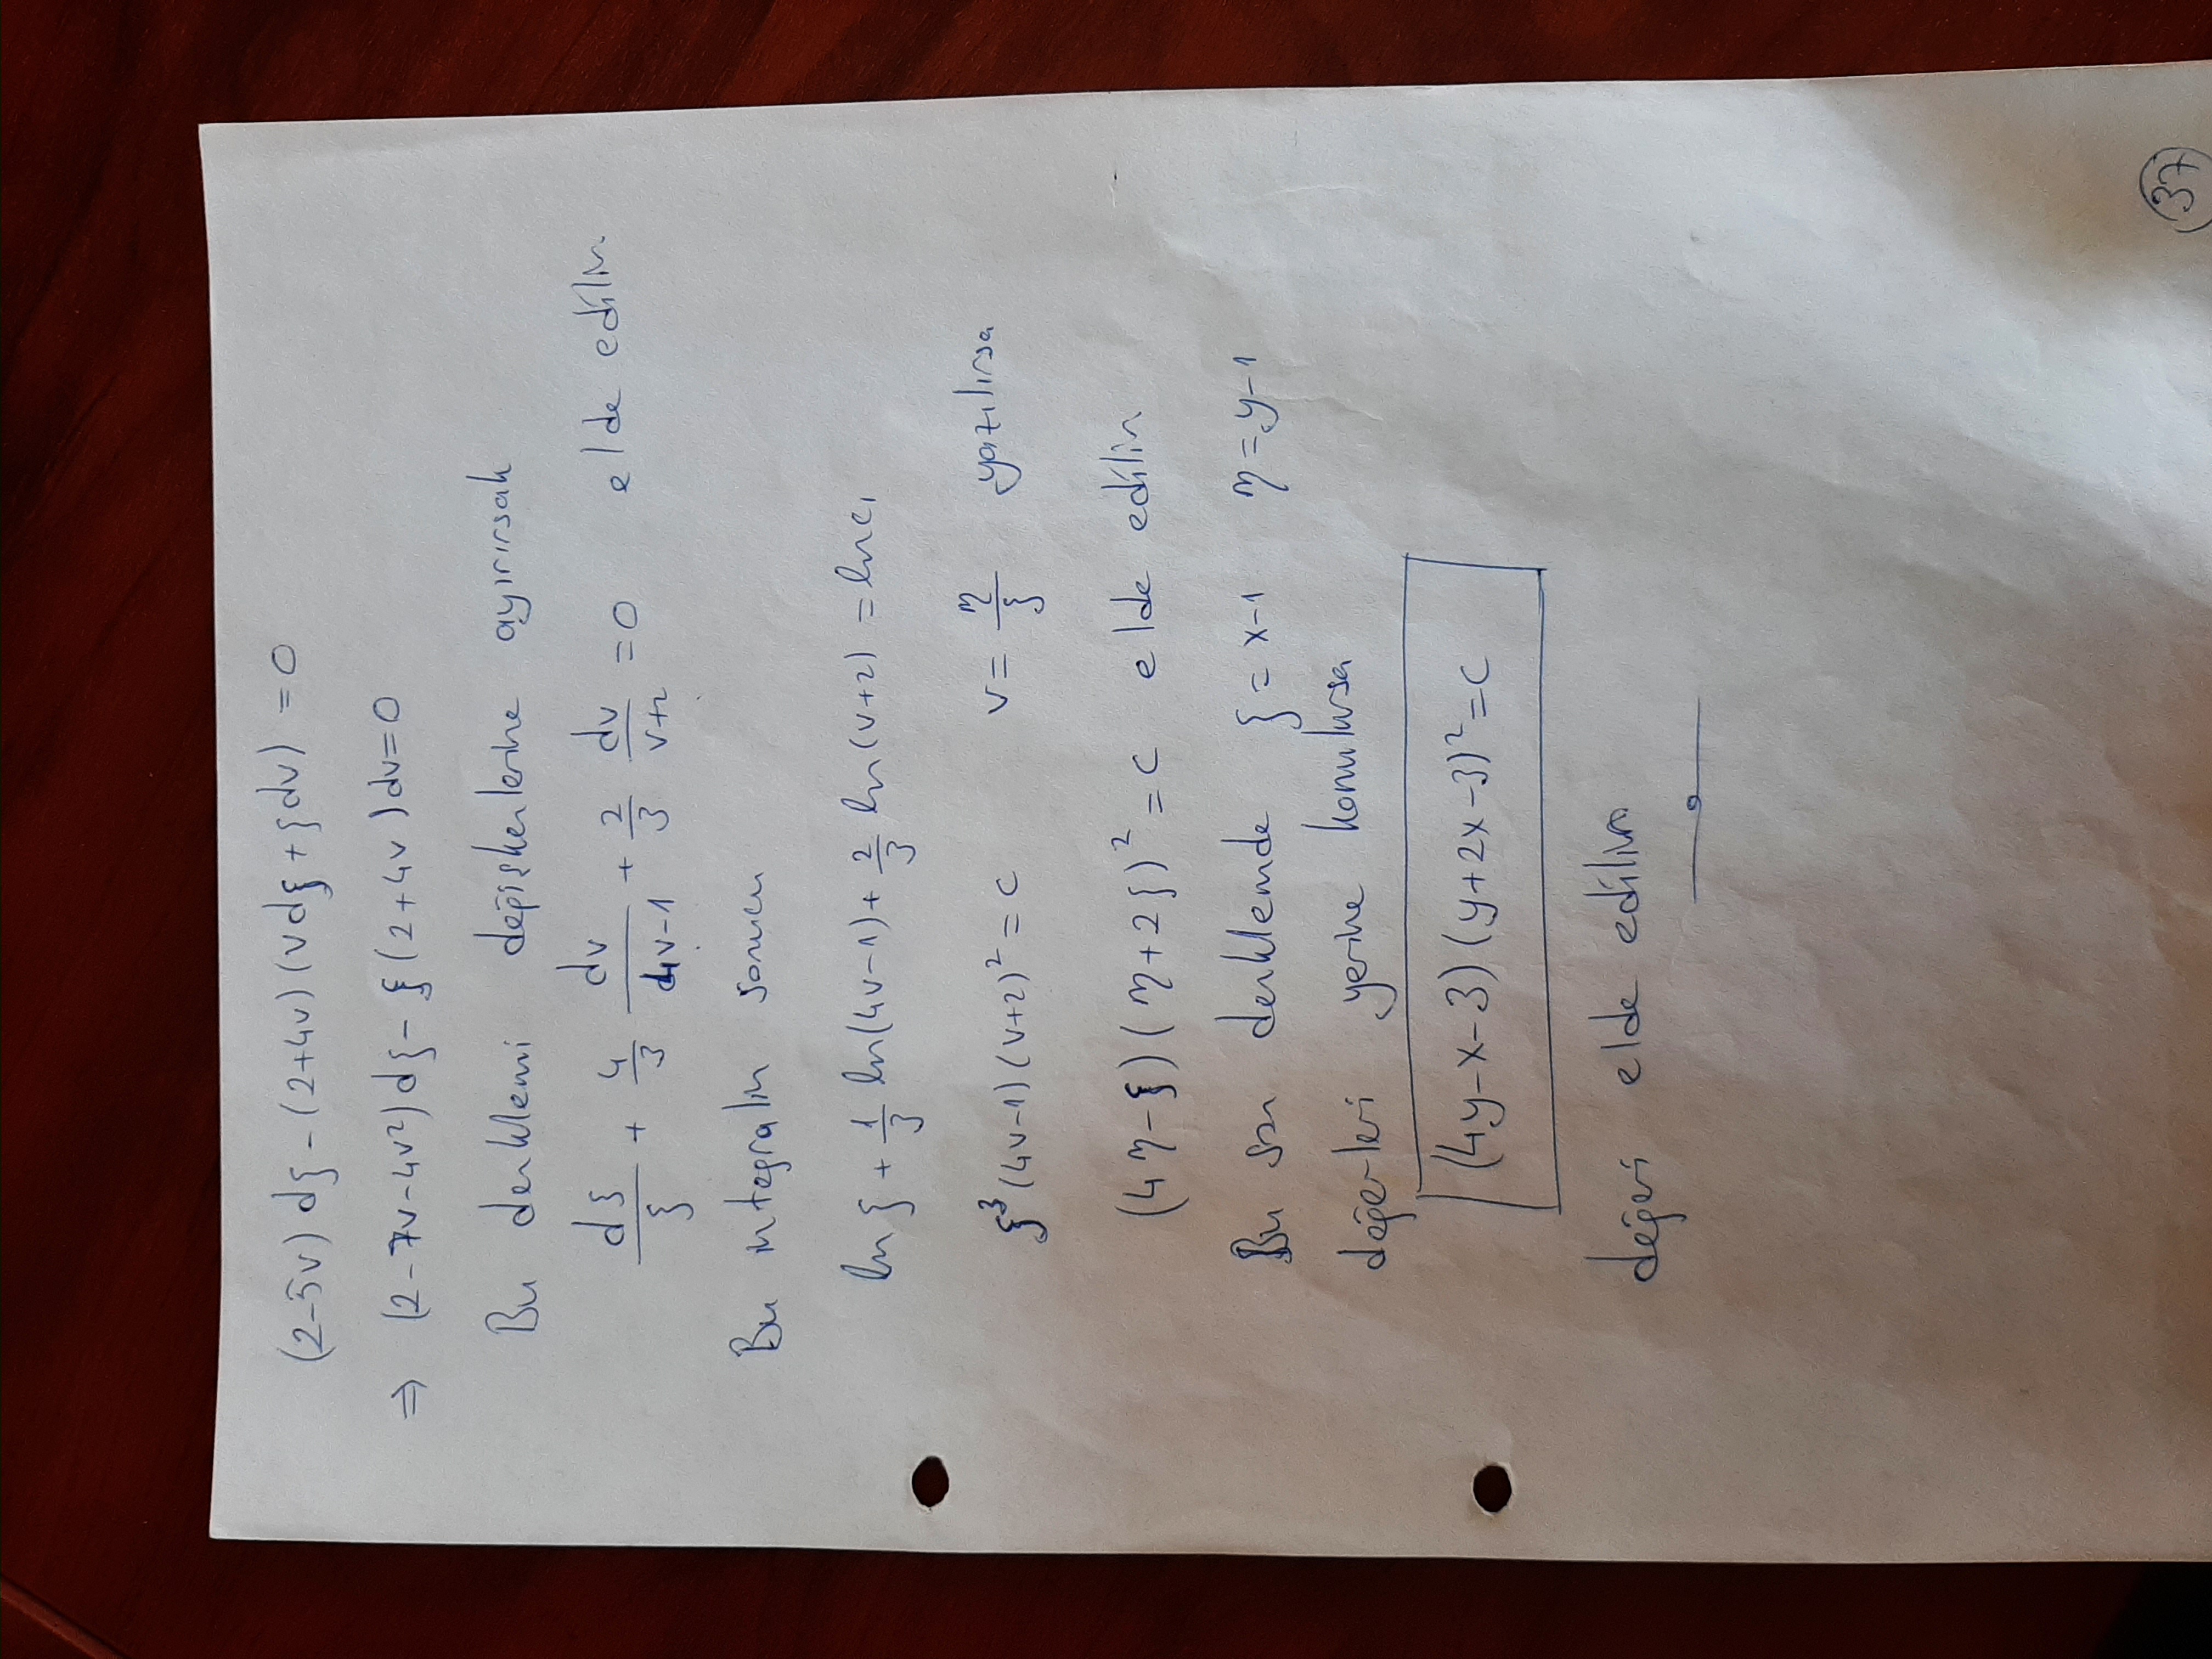 (2-5v) dξ - (2+4v) (v dξ + ξ dv) = 0
⇒ (2-7v-4v²) dξ - ξ (2+4v) dv = 0
Bu denklemi değişkenlerine ayırırsak
dξ/ξ + 4/3 dv/(4v-1) + 2/3 dv/(v+2) = 0 elde edilir
Bu integralin sonucu
ln ξ + 1/3 ln(4v-1) + 2/3 ln(v+2) = ln c₁
ξ³ (4v-1) (v+2)² = c v = η/ξ yazılırsa
(4η-ξ) (η+2ξ)² = c elde edilir
Bu son denklemde ξ = x-1 η = y-1
değerleri yerine konulursa
(4y-x-3) (y+2x-3)² = c
değeri elde edilir
37